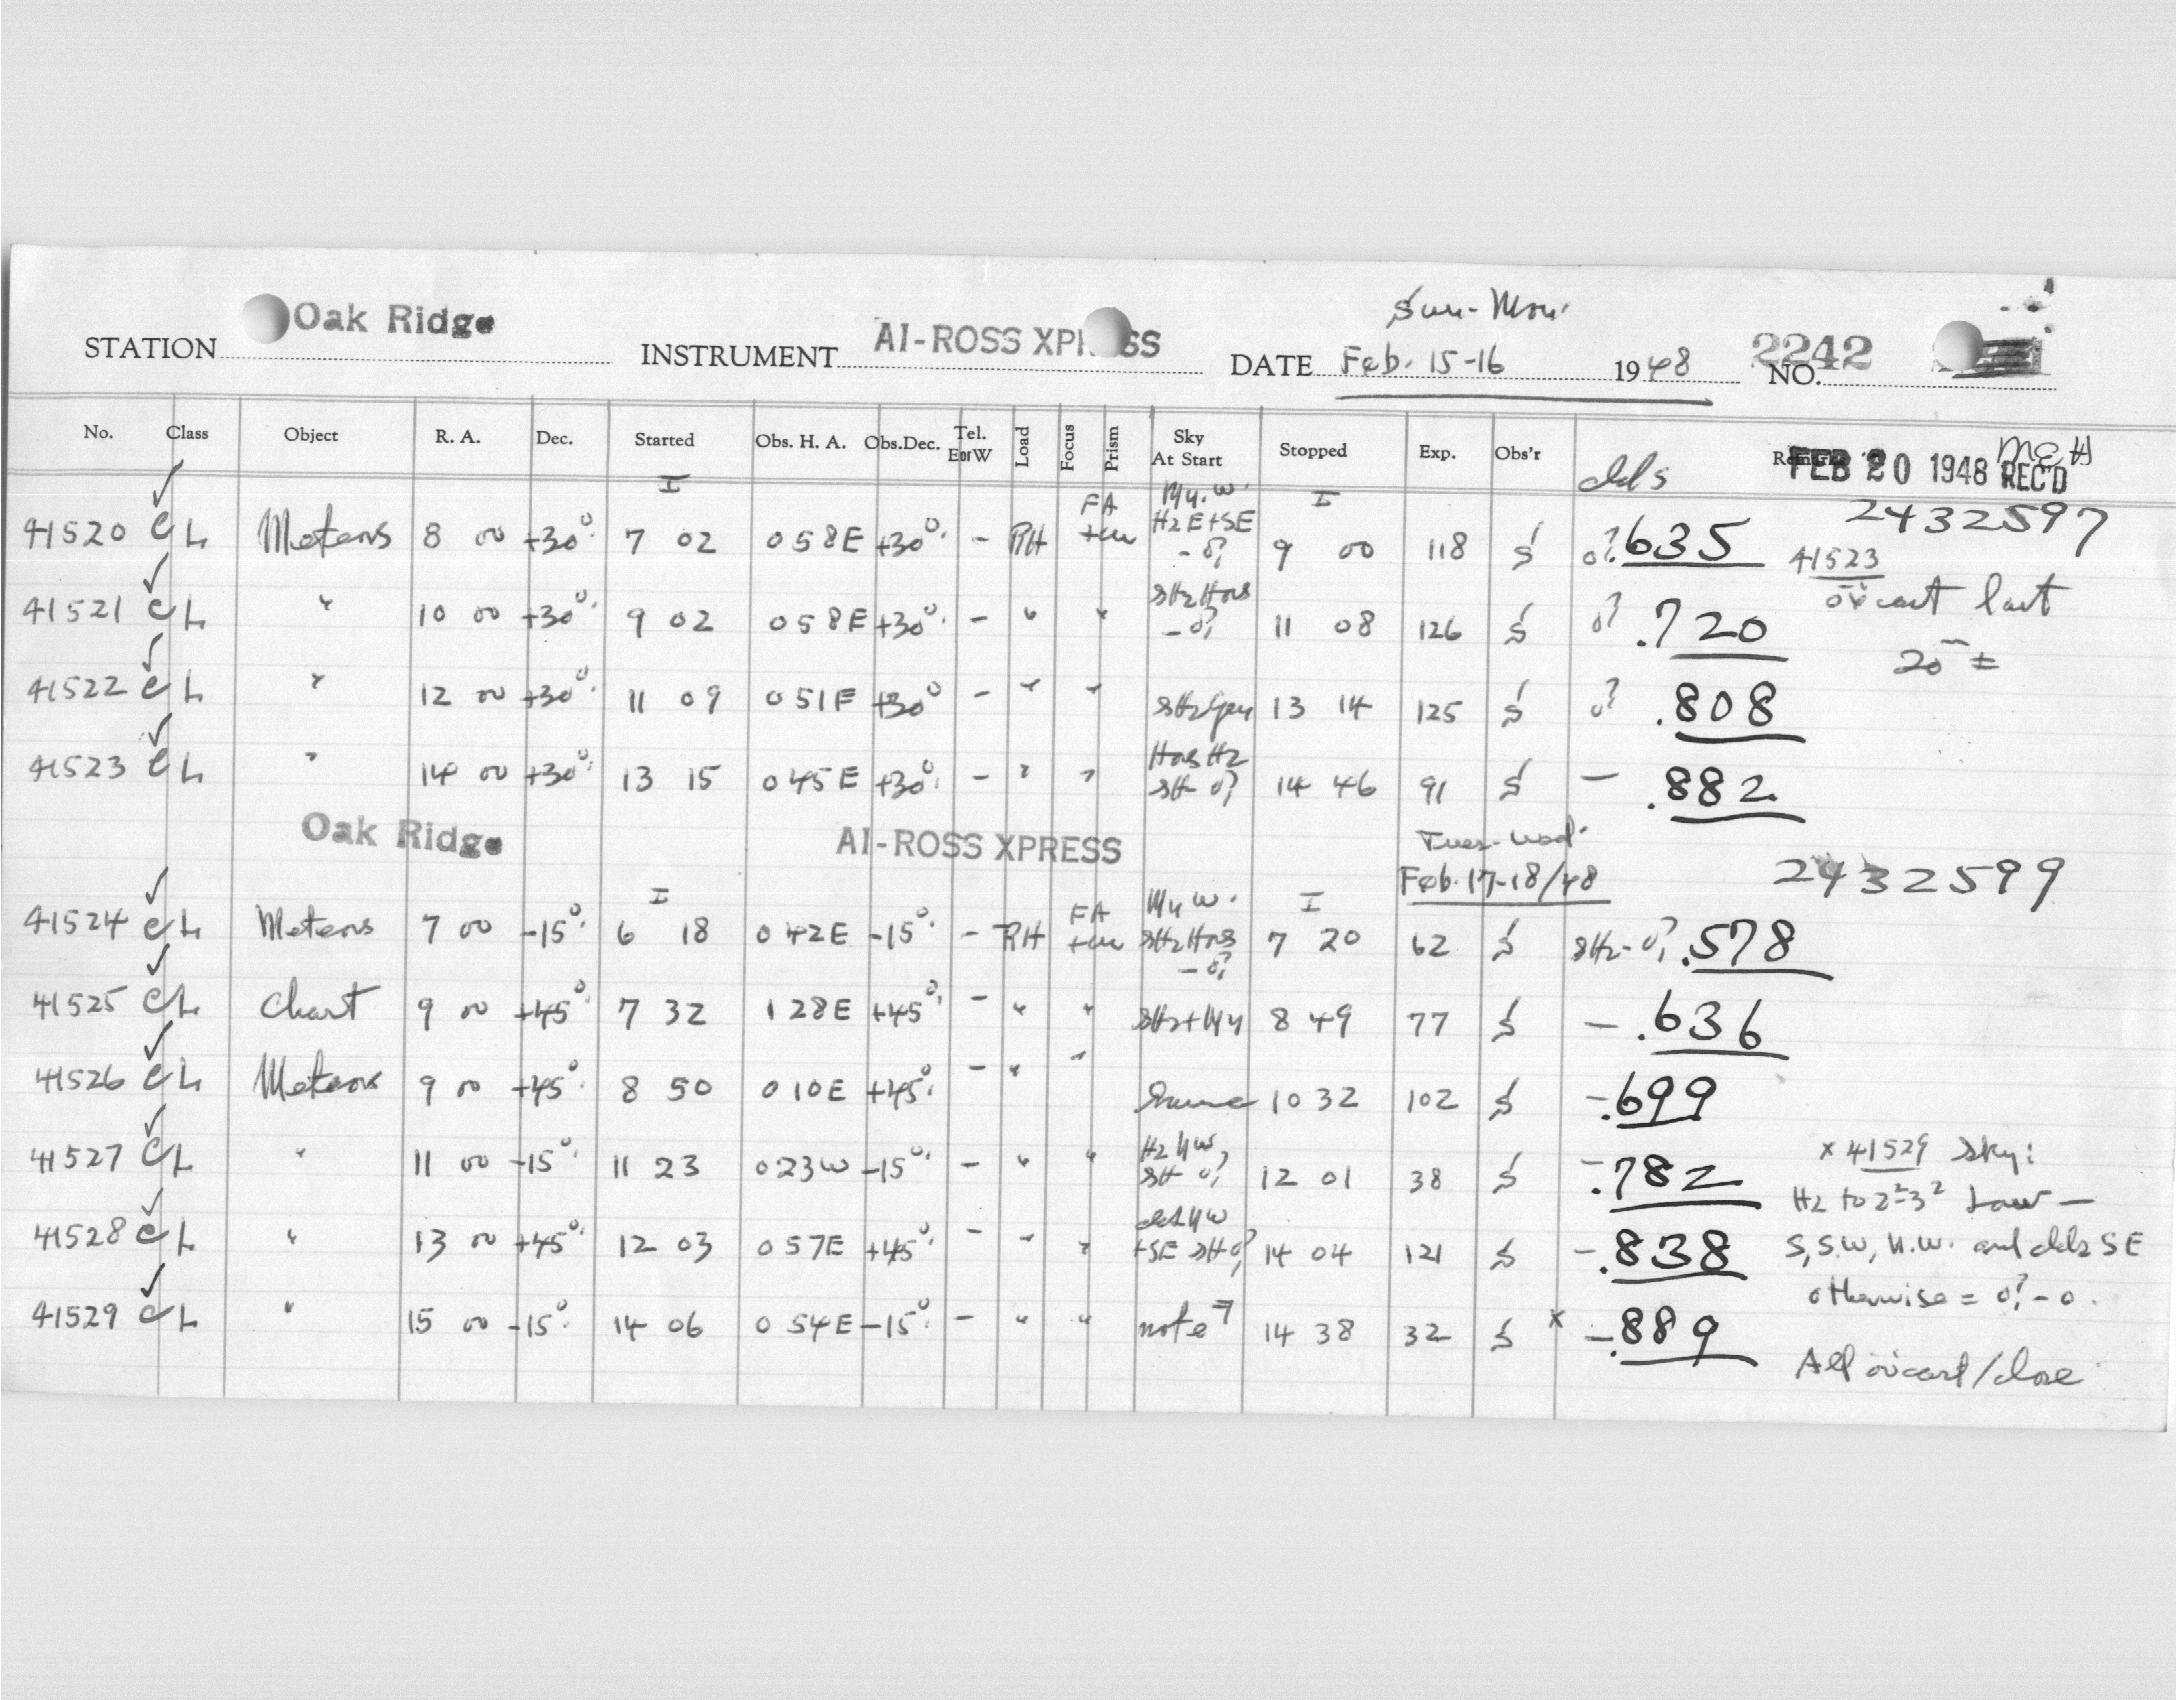 Sun-Mon.
STATION Oak Ridge INSTRUMENT AI-ROSS XPRESS DATE Feb. 15-16 1948 NO. 2242
No. Class Object R. A. Dec. Started Obs. H. A. Obs.Dec. Tel. EorW Load Focus Prism Sky At Start Stopped Exp. Obs'r clds FEB 20 1948 REC'D MEH
I I 2432597
41520 C L Meteors 8 00 +30° 7 02 0 58E +30° - RH FA Hz E+SE - 0? 9 00 118 S 0? .635 41523
41521 C L " 10 00 +30° 9 02 0 58E +30° - " " - 0? 11 08 126 S 0? .720 ov'cast last
20m ±
41522 C L " 12 00 +30° 11 09 0 51E +30° - " " 13 14 125 S 0? .808
41523 C L " 14 00 +30° 13 15 0 45E +30° - " " 0? 14 46 91 S - .882
Oak Ridge AI-ROSS XPRESS Tues-Wed.
Feb. 17-18/48 2432599
I I
41524 C L Meteors 7 00 -15° 6 18 0 42E -15° - RH FA - 0? 7 20 62 S sHz-0? .578
41525 C L Chart 9 00 +45° 7 32 1 28E +45° - " " 8 49 77 S - .636
41526 C L Meteors 9 00 +45° 8 50 0 10E +45° - " " Same 10 32 102 S - .699
41527 C L " 11 00 -15° 11 23 0 23W -15° - " " 12 01 38 S - .782 x 41529 Sky:
Hz to 2²-3² Low —
41528 C L " 13 00 +45° 12 03 0 57E +45° - " " +SE sH 0? 14 04 121 S - .838 S, S.W, N.W. and clds SE
otherwise = 0? - 0.
41529 C L " 15 00 -15° 14 06 0 54E -15° - " " note 14 38 32 S x - .889
All ov'cast/close